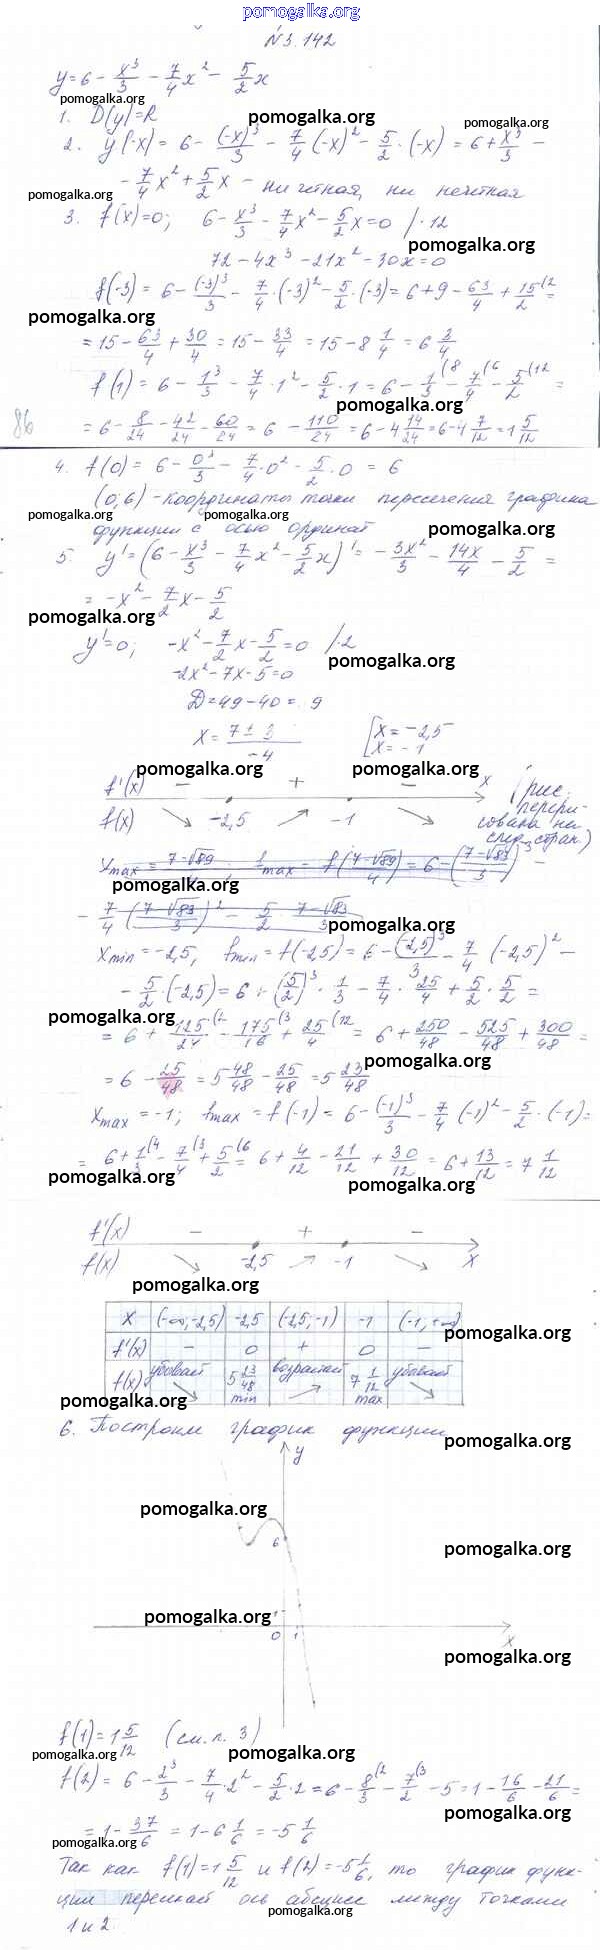 pomogalka.org
№3.142
y=6 - x³/3 - 7/4 x² - 5/2 x
pomogalka.org
1. D(y)=R pomogalka.org pomogalka.org
2. y(-x) = 6 - (-x)³/3 - 7/4 (-x)² - 5/2 · (-x) = 6 + x³/3 -
- 7/4 x² + 5/2 x - ни чётная, ни нечётная
pomogalka.org
3. f(x)=0; 6 - x³/3 - 7/4 x² - 5/2 x = 0 /·12
72 - 4x³ - 21x² - 30x = 0
pomogalka.org
f(-3) = 6 - (-3)³/3 - 7/4 · (-3)² - 5/2 · (-3) = 6 + 9 - 63/4 + 15/2 (2 =
pomogalka.org
= 15 - 63/4 + 30/4 = 15 - 33/4 = 15 - 8 1/4 = 6 3/4
f(1) = 6 - 1³/3 - 7/4 · 1² - 5/2 · 1 = 6 - 1/3 (8 - 7/4 (6 - 5/2 (12 =
pomogalka.org
86
= 6 - 8/24 - 42/24 - 60/24 = 6 - 110/24 = 6 - 4 14/24 = 6 - 4 7/12 = 1 5/12
4. f(0) = 6 - 0³/3 - 7/4 · 0² - 5/2 · 0 = 6
(0; 6) - координаты точки пересечения графика
pomogalka.org pomogalka.org
функции с осью ординат pomogalka.org
5. y' = (6 - x³/3 - 7/4 x² - 5/2 x)' = - 3x²/3 - 14x/4 - 5/2 =
= -x² - 7/2 x - 5/2
pomogalka.org
y'=0; -x² - 7/2 x - 5/2 = 0 /·2
pomogalka.org
-2x² - 7x - 5 = 0
D = 49 - 40 = 9
x = 7 ± 3/-4 [x = -2,5
x = -1
pomogalka.org pomogalka.org
f'(x) - + - x (рис.
f(x) -2,5 -1 перери-
сована на
след. стран.)
xmax = 7-√89/4; fmax = f(7-√89/4) = 6 - (7-√83/3)³ -
pomogalka.org
- 7/4 (7-√83/3)² - 5/2 · 7-√83/3
pomogalka.org
xmin = -2,5; fmin = f(-2,5) = 6 - (-2,5)³/3 - 7/4 (-2,5)² -
- 5/2 · (-2,5) = 6 + (5/2)³ · 1/3 - 7/4 · 25/4 + 5/2 · 5/2 =
pomogalka.org
= 6 + 125/24 (2 - 175/16 (3 + 25/4 (12 = 6 + 250/48 - 525/48 + 300/48 =
pomogalka.org
= 6 - 25/48 = 5 48/48 - 25/48 = 5 23/48
xmax = -1; fmax = f(-1) = 6 - (-1)³/3 - 7/4 (-1)² - 5/2 · (-1) =
= 6 + 1/3 (4 - 7/4 (3 + 5/2 (6 = 6 + 4/12 - 21/12 + 30/12 = 6 + 13/12 = 7 1/12
pomogalka.org pomogalka.org
f'(x) - + -
f(x) -2,5 -1 x
pomogalka.org
x (-∞; -2,5) -2,5 (-2,5; -1) -1 (-1; +∞)
pomogalka.org
f'(x) - 0 + 0 -
f(x) убывает 5 23/48 min возрастает 7 1/12 max убывает
pomogalka.org pomogalka.org
6. Построим график функции
pomogalka.org
y
pomogalka.org
6
pomogalka.org
pomogalka.org
1
0 1 x
pomogalka.org
f(1) = 1 5/12 (см. п. 3)
pomogalka.org pomogalka.org
f(2) = 6 - 2³/3 - 7/4 · 2² - 5/2 · 2 = 6 - 8/3 (2 - 7/2 (3 - 5 = 1 - 16/6 - 21/6 =
pomogalka.org
= 1 - 37/6 = 1 - 6 1/6 = -5 1/6
pomogalka.org
Так как f(1) = 1 5/12 и f(2) = -5 1/6, то график функ-
ции пересекает ось абсцисс между точками
pomogalka.org
1 и 2.